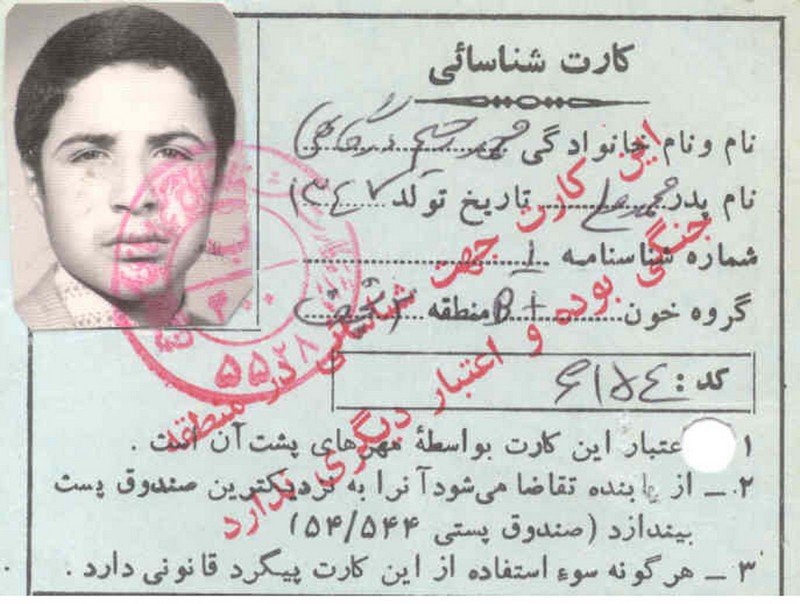 کارت شناسائی
نام و نام خانوادگی محمد رحیم
نام پدر محمد علی تاریخ تولد ۱۳۴۷
شماره شناسنامه ۱
گروه خون B+ منطقه
کد : ۶۱۵۴
۱ عتبار این کارت بواسطهٔ مهرهای پشت آن است .
۲ ــ از یابنده تقاضا می‌شود آنرا به نزدیکترین صندوق پست
بیندازد (صندوق پستی ۵۴/۵۴۴)
۳ ــ هرگونه سوء استفاده از این کارت پیگرد قانونی دارد .
این کارت جهت شناسائی در منطقه
جنگی بوده و اعتبار دیگری ندارد
۵۵۲۸